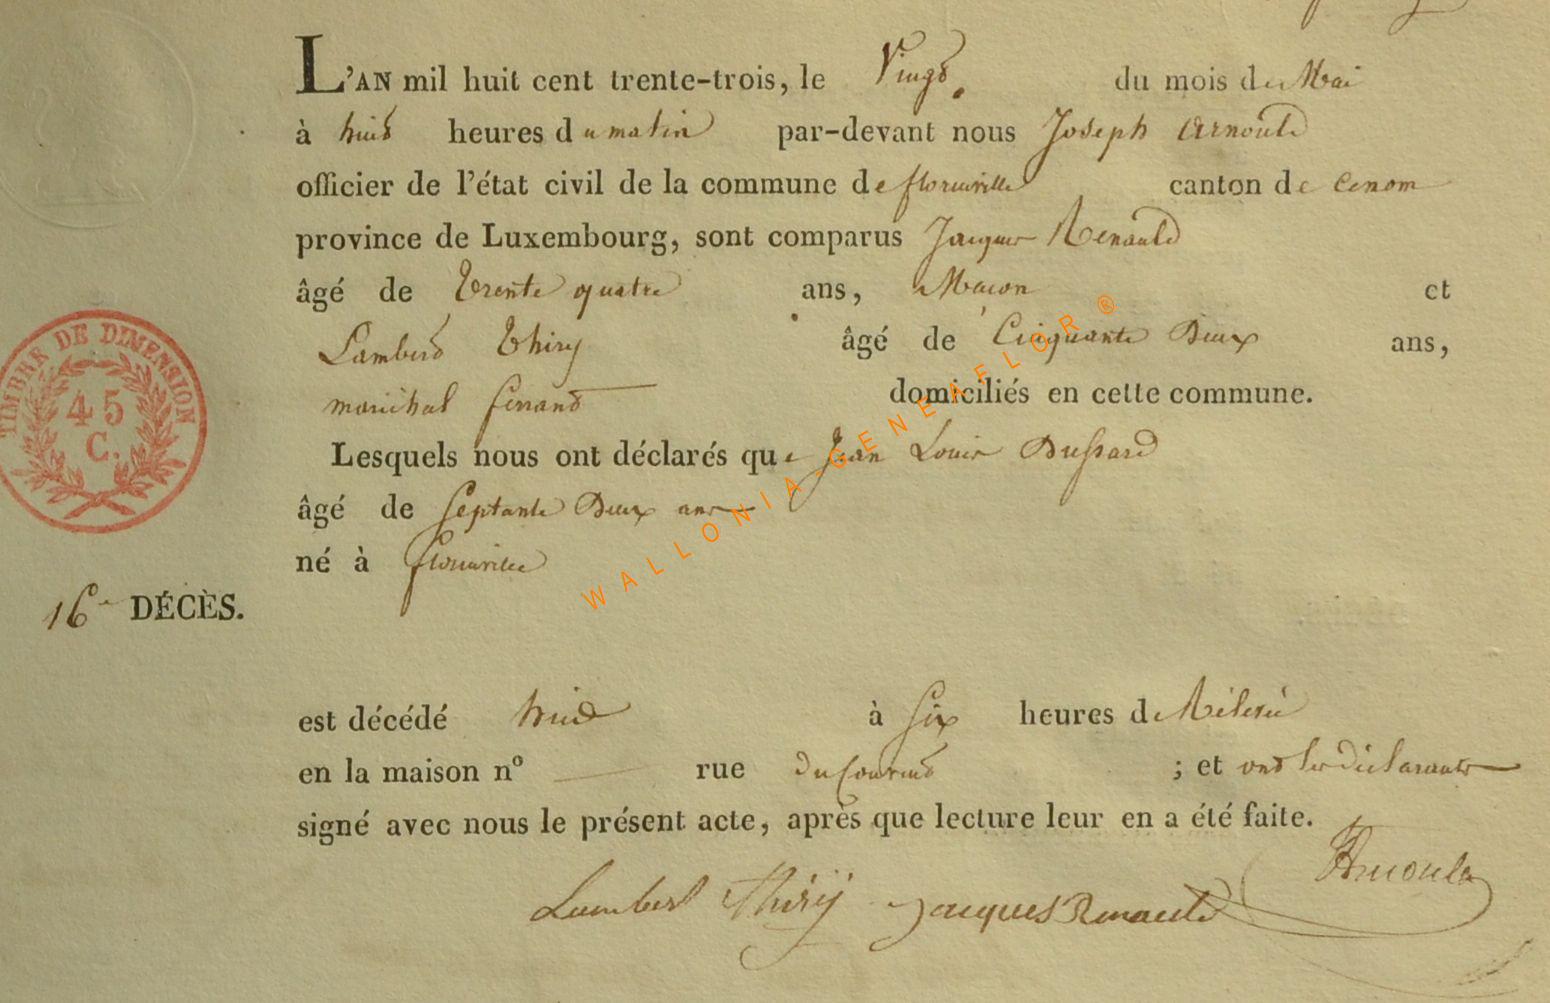 L'AN mil huit cent trente-trois, le Vingt. du mois de Mai
à huit heures du matin par-devant nous Joseph Arnould
officier de l'état civil de la commune de florenville canton de
province de Luxembourg, sont comparus Jacques Renauld
âgé de trente quatre ans, Macon et
Lambert Thiry âgé de Cinquante Deux ans,
marichal ferrant domiciliés en cette commune.
Lesquels nous ont déclarés que Jean Louis Dussard
âgé de septante Deux ans
né à florenville
16e DÉCÈS.
est décédé hier à six heures de
en la maison nº rue du ; et ont les déclarants
signé avec nous le présent acte, après que lecture leur en a été faite.
Arnould
Lambert Thirÿ Jacques Renauld
TIMBRE DE DIMENSION
45
C.
WALLONIA-GENEAFLOR®